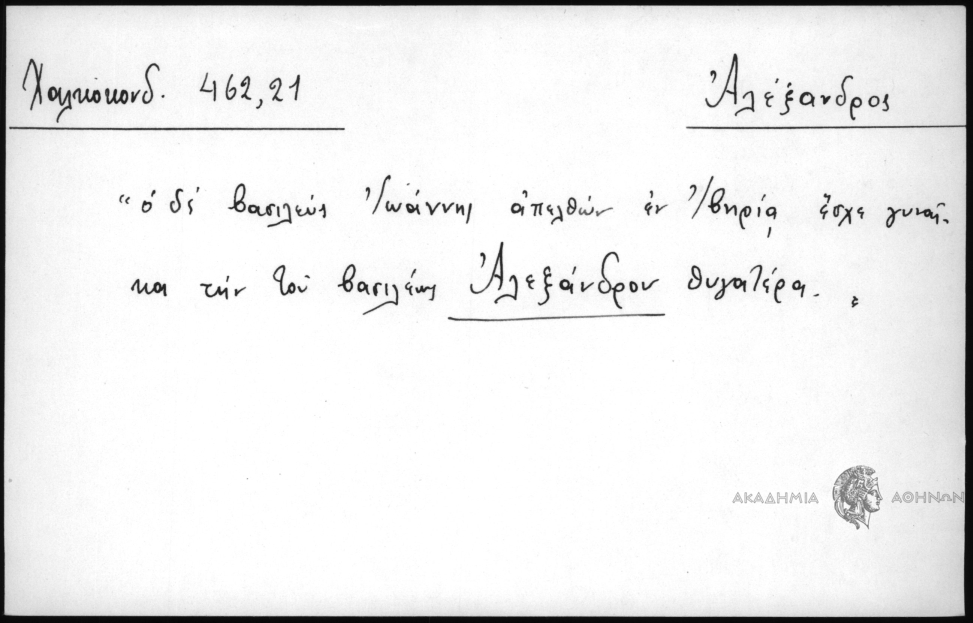 Χαλκοκονδ. 462,21
Ἀλέξανδρος
"ὁ δὲ βασιλεὺς Ἰωάννης ἀπελθὼν ἐν Ἰβηρίᾳ ἔσχε γυναῖ-
κα τὴν τοῦ βασιλέως Ἀλεξάνδρου θυγατέρα. "
ΑΚΑΔΗΜΙΑ ΑΘΗΝΩΝ